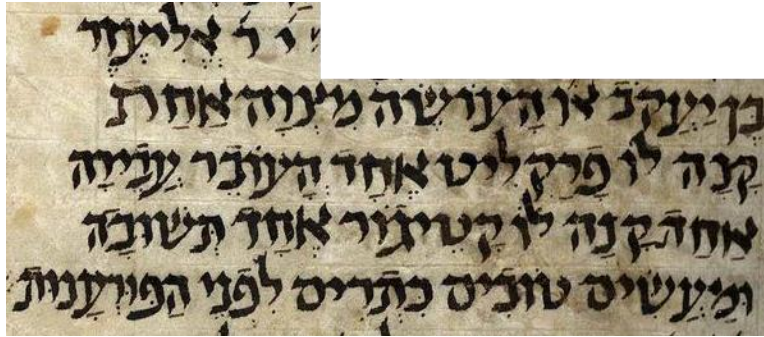 י ר אֱלִיעֶזֶר
בֶּן יַעֲקֹב או הָעוֹשֶׂה מִצְוָה אַחַת
קָנָה לוֹ פְּרַקְלִיט אֶחָד הָעוֹבֵר עֲבֵירָה
אַחַת קָנָה לוֹ קָטֵיגוֹר אֶחָד תְּשׁוּבָה
וּמַעֲשִׂים טוֹבִים כִּתְרִיס לִפְנֵי הַפּוּרְעָנוּת